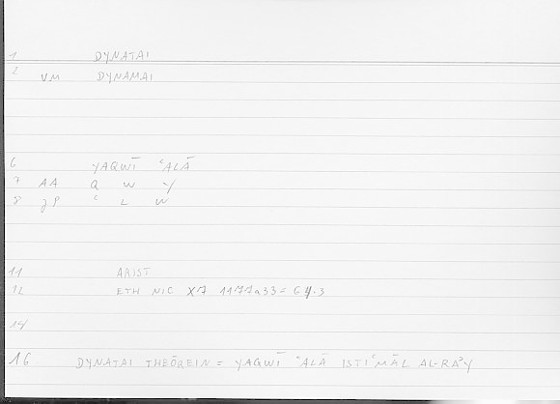 1 DYNATAI
2 VM DYNAMAI
6 YAQWĪ ʿALĀ
7 AA Q W Y
8 ʿ L W
11 ARIST
12 ETH NIC 1177a33 =
14
16 DYNATAI THEŌREIN = YAQWĪ ʿALĀ ISTIʿMĀL AL-RAʾY